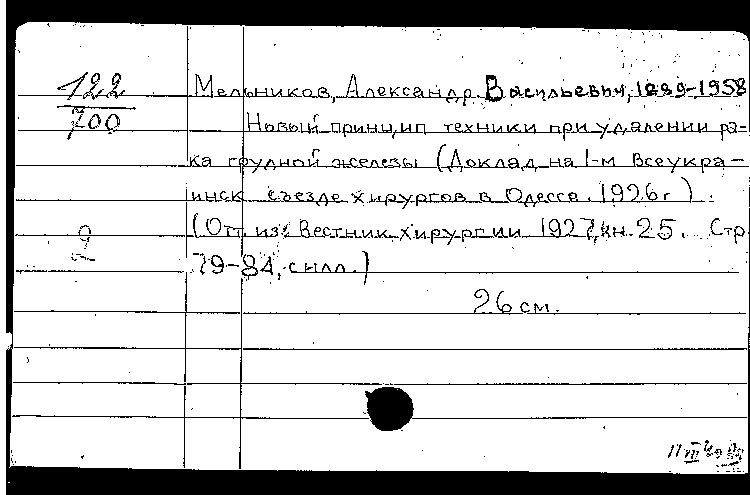 122
700
Мельников, Александр Васильевич, 1889-1958
Новый принцип техники при удалении ра-
ка грудной железы (Доклад на I-м Всеукра-
инск съезде хирургов в Одессе. 1926г.).
(Отт. из: Вестник хирургии 1927, кн. 25. Стр.
79-84, с илл.)
26 см.